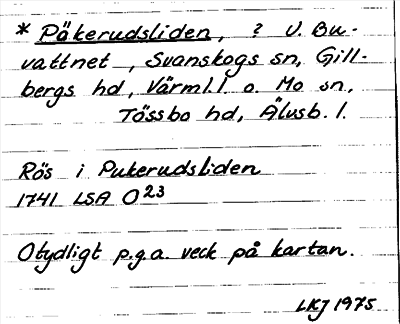 * Påkerudsliden, ? V. Bu-
vattnet, Svanskogs sn, Gill-
bergs hd, Värml. l. o. Mo sn,
Tössbo hd, Älvsb. l.
Rös i Pukerudsliden
1741 LSA O23
Otydligt p.g.a. veck på kartan.
LKJ 1975